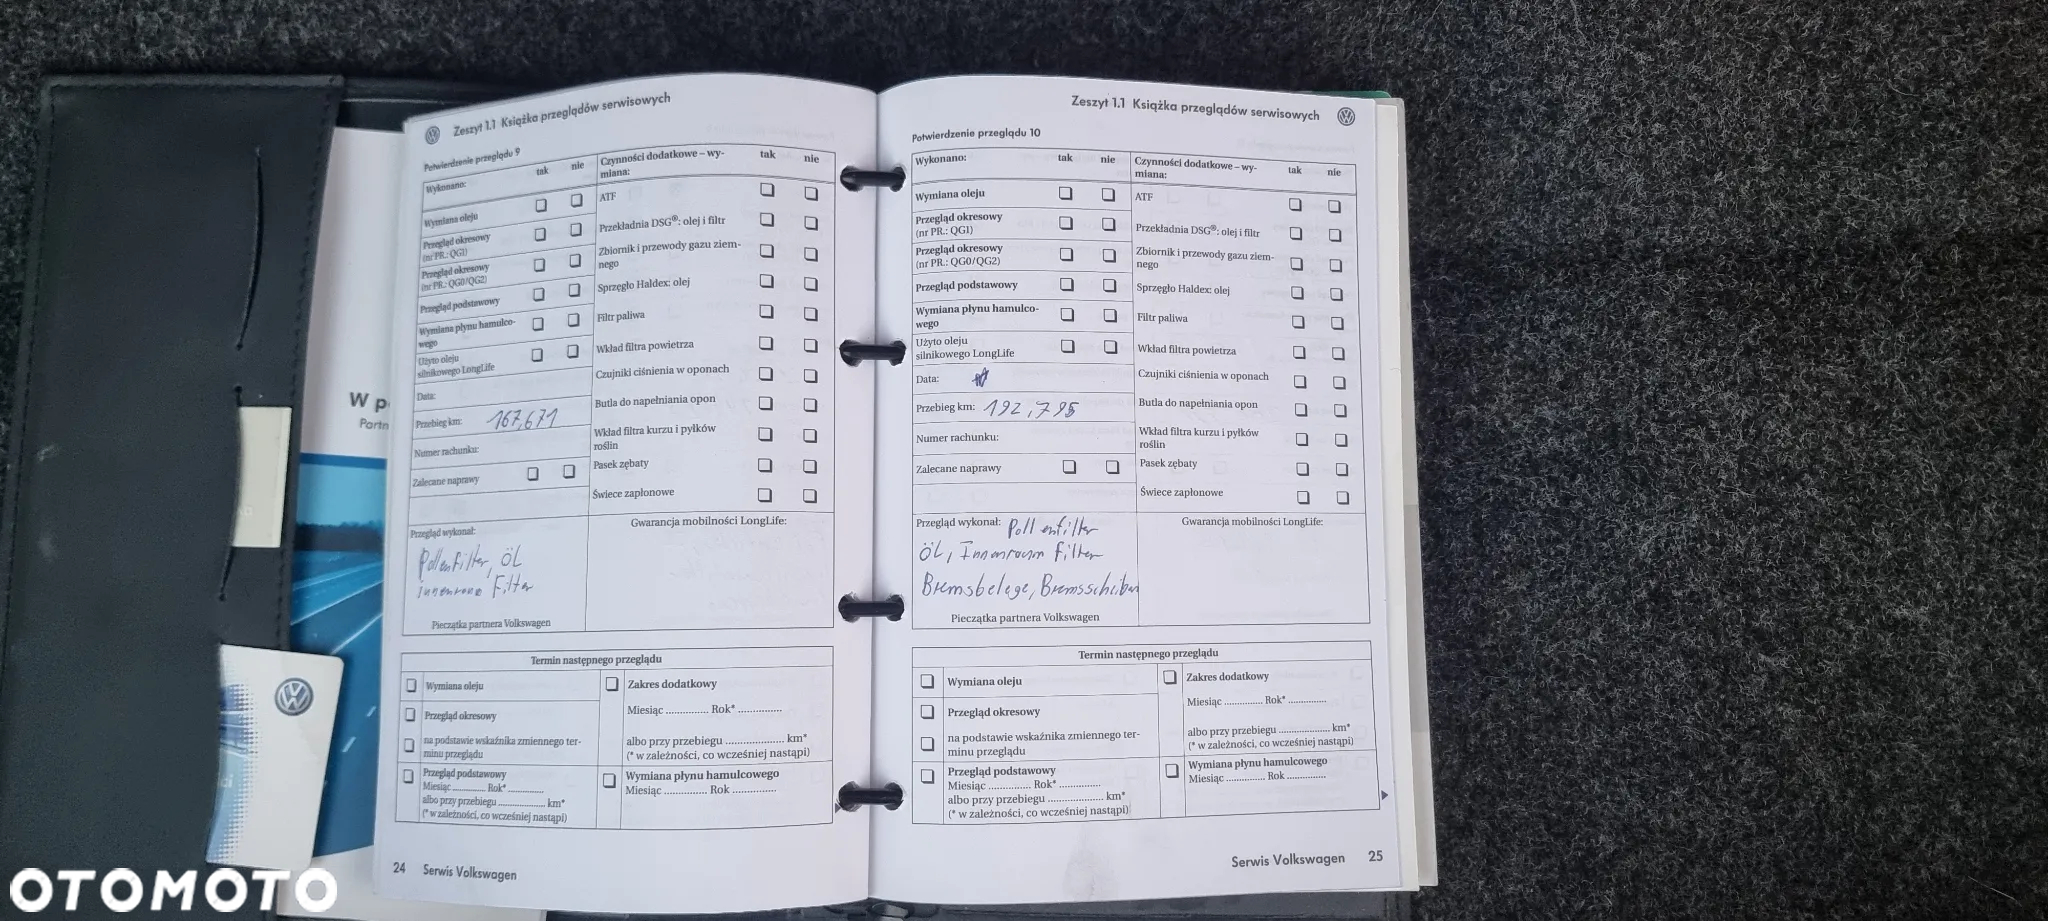 Zeszyt 1.1 Książka przeglądów serwisowych
Potwierdzenie przeglądu 9
Wykonano: tak nie
Wymiana oleju
Przegląd okresowy
(nr PR.: QG1)
Przegląd okresowy
(nr PR.: QG0/QG2)
Przegląd podstawowy
Wymiana płynu hamulco-
wego
Użyto oleju
silnikowego LongLife
Data:
Przebieg km: 167,671
Numer rachunku:
Zalecane naprawy
Czynności dodatkowe – wy-
miana: tak nie
ATF
Przekładnia DSG®: olej i filtr
Zbiornik i przewody gazu ziem-
nego
Sprzęgło Haldex: olej
Filtr paliwa
Wkład filtra powietrza
Czujniki ciśnienia w oponach
Butla do napełniania opon
Wkład filtra kurzu i pyłków
roślin
Pasek zębaty
Świece zapłonowe
Przegląd wykonał:
Pollenfilter, ÖL
innenraum Filter
Pieczątka partnera Volkswagen
Gwarancja mobilności LongLife:
Termin następnego przeglądu
Wymiana oleju
Przegląd okresowy
na podstawie wskaźnika zmiennego ter-
minu przeglądu
Przegląd podstawowy
Miesiąc .............. Rok* ..............
albo przy przebiegu .................... km*
(* w zależności, co wcześniej nastąpi)
Zakres dodatkowy
Miesiąc .............. Rok* ..............
albo przy przebiegu .................... km*
(* w zależności, co wcześniej nastąpi)
Wymiana płynu hamulcowego
Miesiąc .............. Rok ..............
24 Serwis Volkswagen
Zeszyt 1.1 Książka przeglądów serwisowych
Potwierdzenie przeglądu 10
Wykonano: tak nie
Wymiana oleju
Przegląd okresowy
(nr PR.: QG1)
Przegląd okresowy
(nr PR.: QG0/QG2)
Przegląd podstawowy
Wymiana płynu hamulco-
wego
Użyto oleju
silnikowego LongLife
Data:
Przebieg km: 192,795
Numer rachunku:
Zalecane naprawy
Czynności dodatkowe – wy-
miana: tak nie
ATF
Przekładnia DSG®: olej i filtr
Zbiornik i przewody gazu ziem-
nego
Sprzęgło Haldex: olej
Filtr paliwa
Wkład filtra powietrza
Czujniki ciśnienia w oponach
Butla do napełniania opon
Wkład filtra kurzu i pyłków
roślin
Pasek zębaty
Świece zapłonowe
Przegląd wykonał: Pollenfilter
ÖL, Innenraum Filter
Bremsbelege, Bremsscheiben
Pieczątka partnera Volkswagen
Gwarancja mobilności LongLife:
Termin następnego przeglądu
Wymiana oleju
Przegląd okresowy
na podstawie wskaźnika zmiennego ter-
minu przeglądu
Przegląd podstawowy
Miesiąc .............. Rok* ..............
albo przy przebiegu .................... km*
(* w zależności, co wcześniej nastąpi)
Zakres dodatkowy
Miesiąc .............. Rok* ..............
albo przy przebiegu .................... km*
(* w zależności, co wcześniej nastąpi)
Wymiana płynu hamulcowego
Miesiąc .............. Rok ..............
Serwis Volkswagen 25
W p
Partn
OTOMOTO